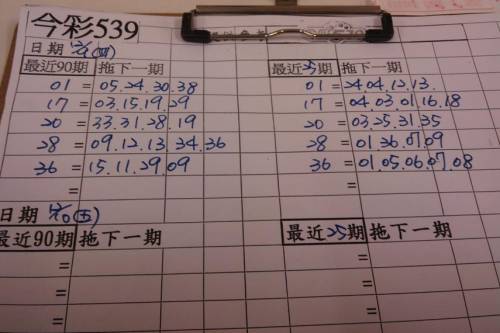 今彩539
日期 (四)
最近90期 拖下一期
01 = 05.24.30.38
17 = 03.15.19.29
20 = 33.31.28.19
28 = 09.12.13.34.36
36 = 15.11.29.09
=
最近25期 拖下一期
01 = 24.04.12.13.
17 = 04.03.01.16.18
20 = 03.25.31.35
28 = 01.26.07.09
36 = 01.05.06.07.08
=
日期 (五)
最近90期 拖下一期
=
=
=
最近25期 拖下一期
=
=
=